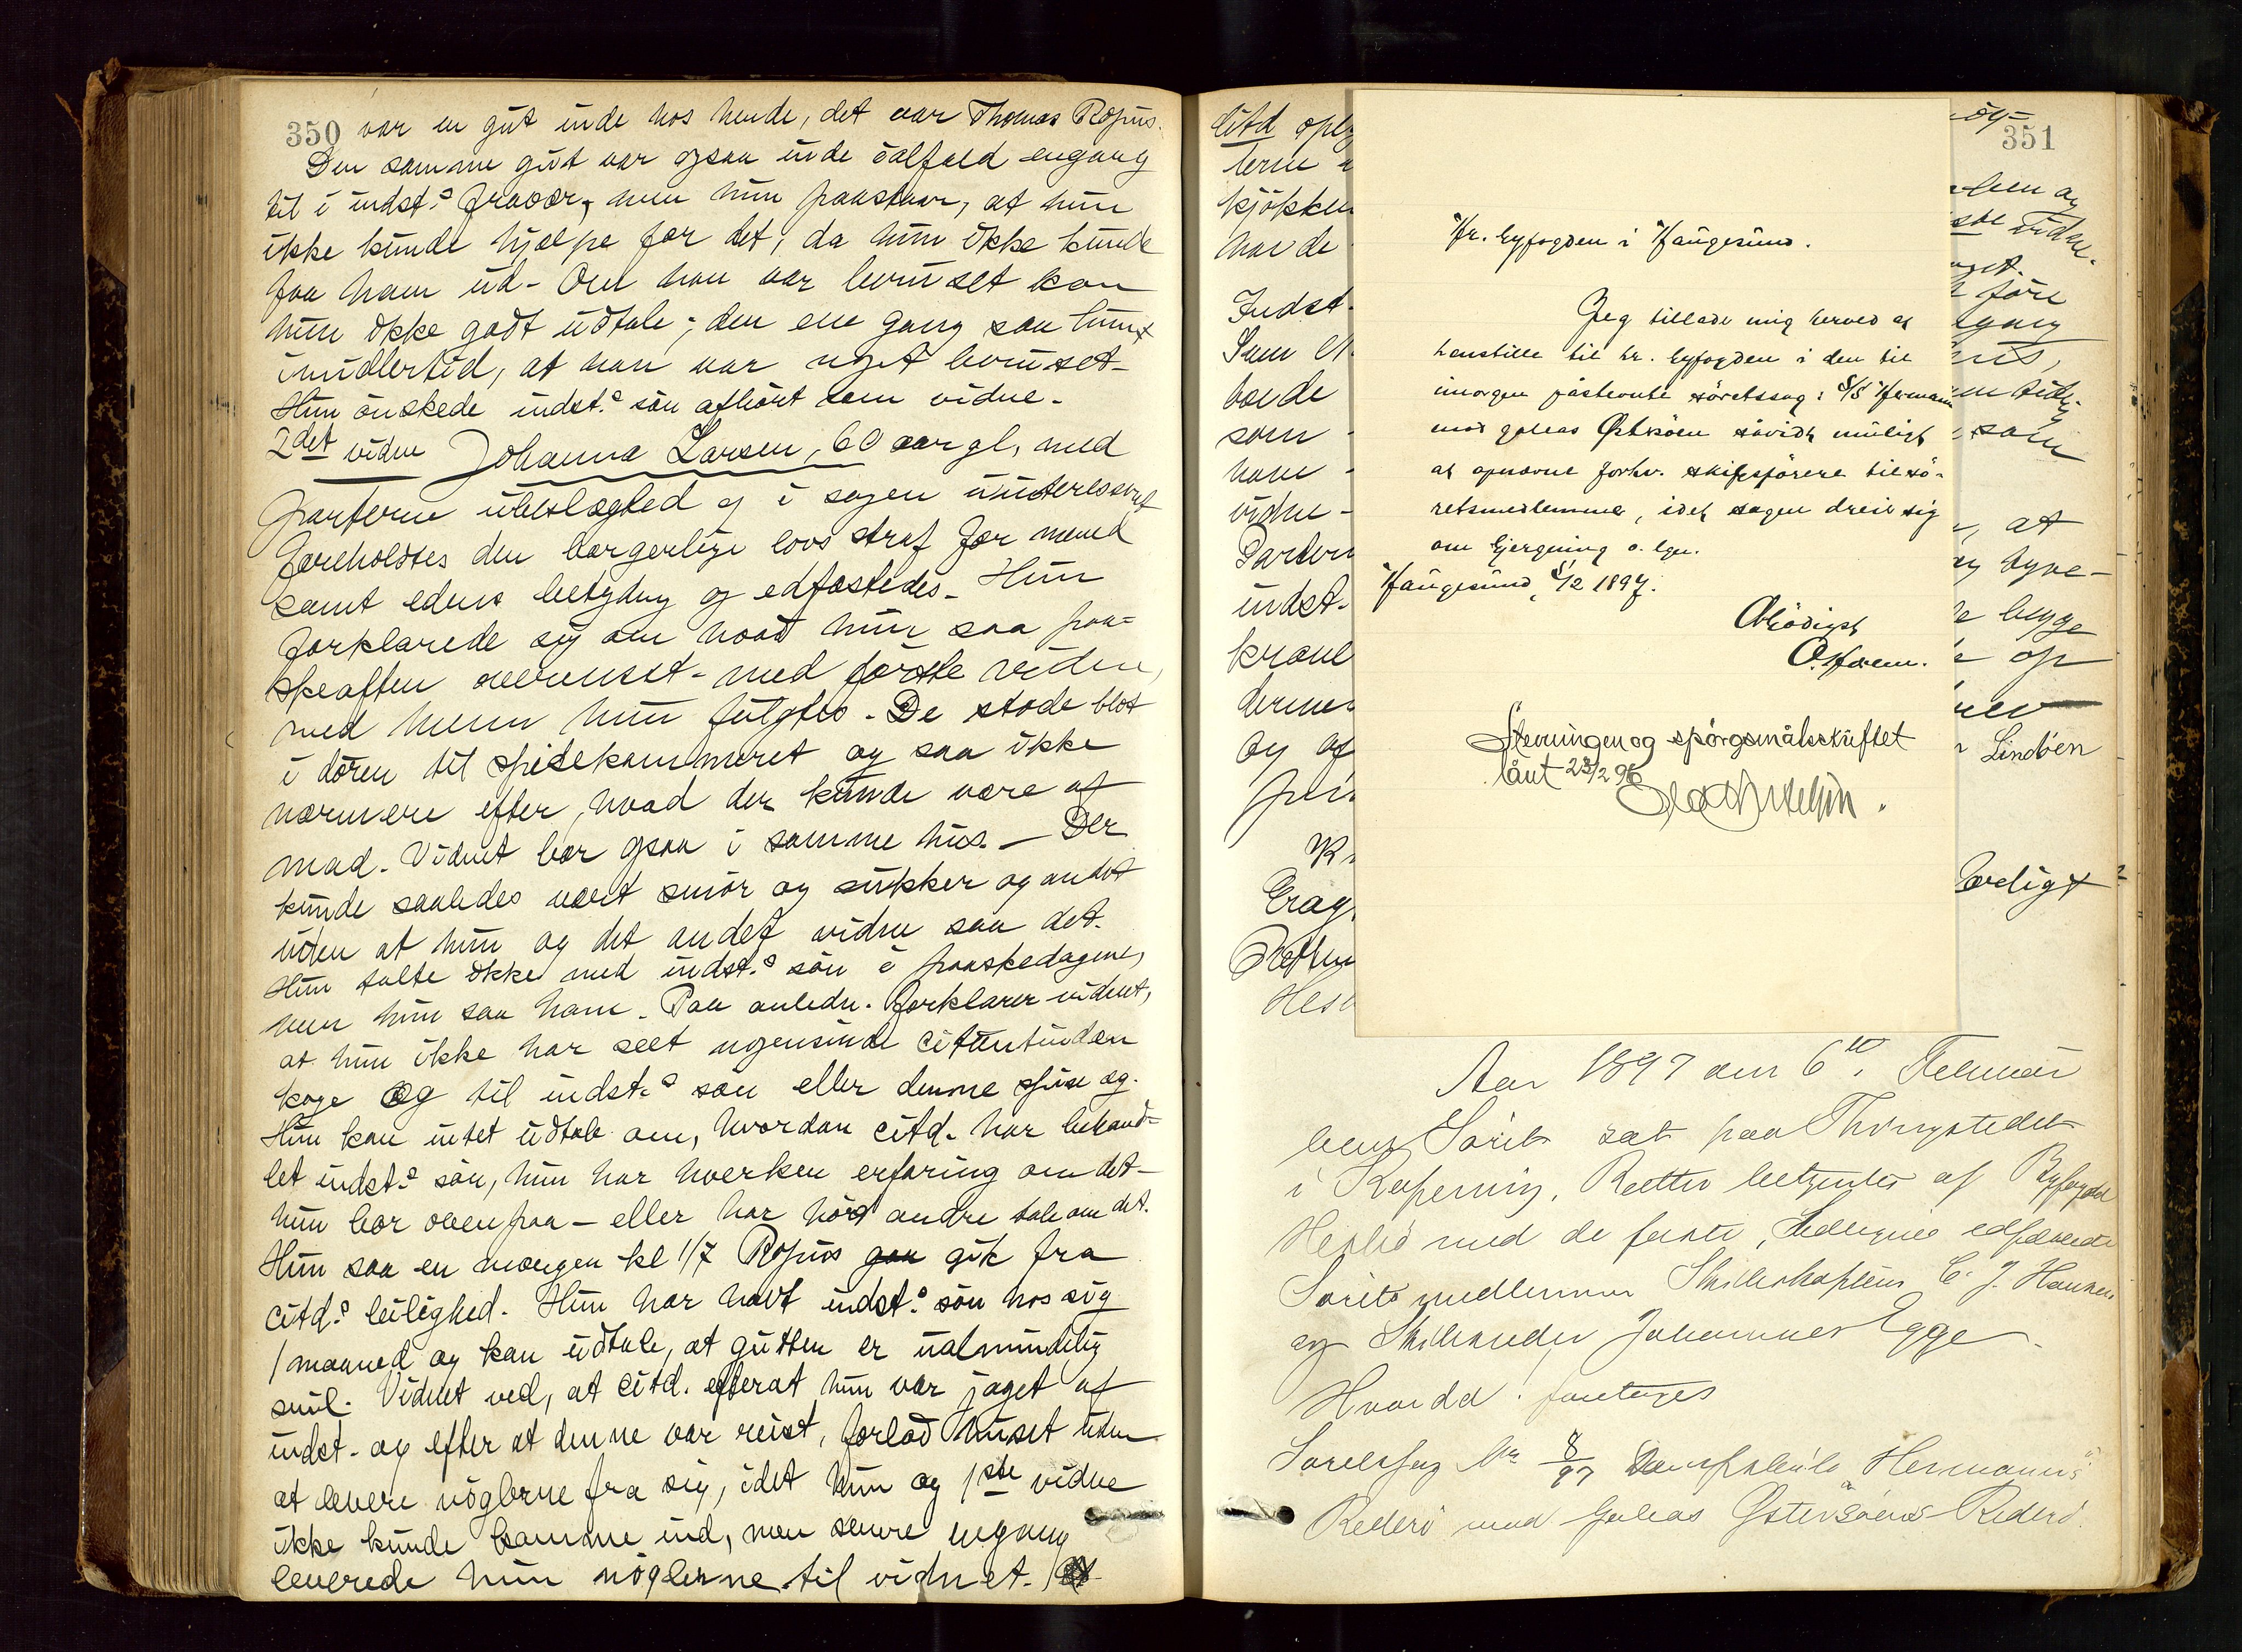 350 var en gut inde hos hende, det var Thomas Ropus.
Den samme gut var ogsaa inde ialfald engang
til i indst.s fravær, men hun paastaar, at hun
ikke kunde hjælpe for det, da hun ikke kunde
faa ham ud - Om han var beruset kan
hun ikke godt udtale; den ene gang saa hun
imidlertid, at han var noget beruset -
Hun önskede indst.s sön afhört som vidne.
2det vidne Johanna Larsen, 60 aar gl, med
parterne ubeslægted og i sagen uinteresseret
foreholdtes den borgerlige lovs straf for mened
samt edens betydning og edfæstedes - Hun
forklarede sig om hvad hun saa paa-
skeaften overensst. med förste vidne,
med hvem hun fulgtes. De stode blot
i dören til spisekammeret og saa ikke
nærmere efter, hvad der kunde være af
mad. Vidnet bor ogsaa i samme hus. - Der
kunde saaledes været smör og sukker og andet
uden at hun og det andet vidne saa det.
Hun talte ikke med indst.s sön i paaskedagene,
men hun saa ham. Paa anledn. forklarer vidnet,
at hun ikke har seet nogensinde citantinden
koge æg til indst.s sön eller denne spise æg.
Hun kan intet udtale om, hvordan citd. har behand-
let indst.s sön, hun har hverken erfaring om det -
hun bor ovenpaa - eller har hört andre tale om det.
Hun saa en morgen kl 1/7 Ropus gaa gik fra
citd.s leilighed. Hun har havt indst.s sön hos sig
1 maaned og kan udtale, at gutten er ualmindelig
snil. Vidnet ved, at citd. efterat hun var jaget af
indst. og efter at denne var reist, forlod huset uden
at levere nöglerne fra sig, idet hun og 1ste vidne
ikke kunde komme ind, men senere engang
leverede hun nöglerne til vidnet.
351
Citd
kjökken
havde
Indst.
havde
som
ham
vidne -
indst.
og af
Hr. byfogden i Haugesund.
Jeg tillader mig herved at
henstille til hr. byfogden i den til
imorgen påstevnte söretssag: S/S Hermann
mod galeas Östersöen såvidt muligt
at opnævne forhv. skibsförere til sö-
retsmedlemmer, idet sagen dreier sig
om bjergning o. lgn.
Haugesund, 5/2 1897.
Ærbödigst
Stevningen og spörgsmålsskriftet
lånt 23/2 96
före
som
at
begge
op
Lindöen
færdigt
Aar 1897 den 6te Februar
blev Söret sat paa Thingstedet
i Kopervig, Retten betjentes af Byfogd
med de faste, edfæstede
Sörets medlemmer Skibskaptein C. J. Hansen
og Skibsreder Johannes Egge
Hvorda! foretoges
Söretssag No 8/97 Dampskibet "Hermann's"
Rederi mod Galeas Östersöens Rederi.